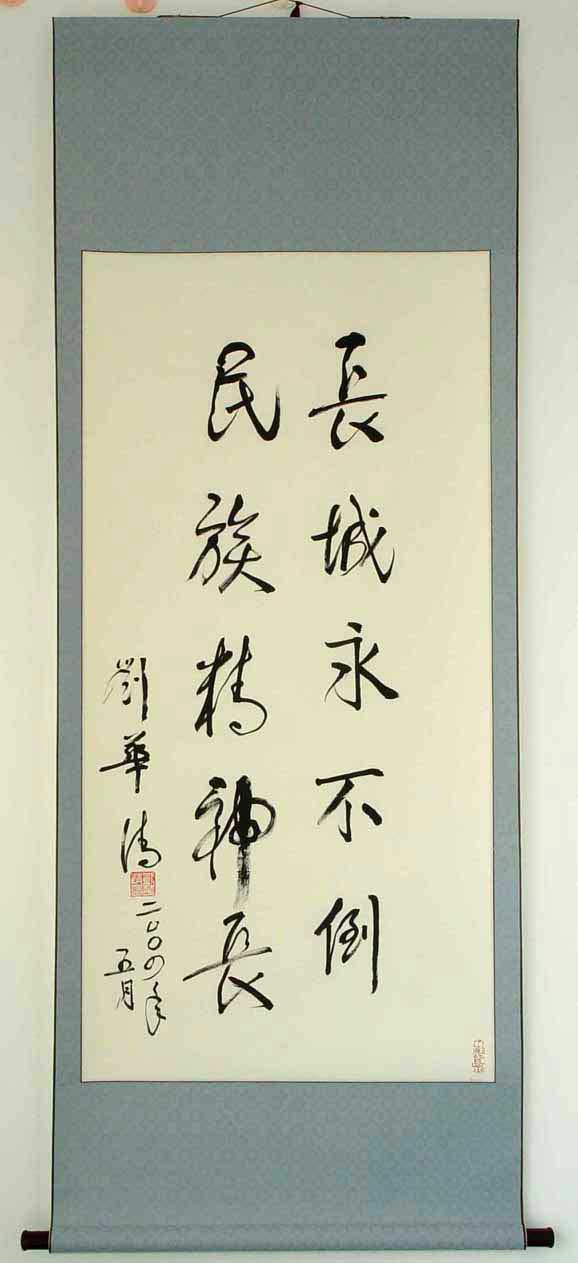 長城永不倒
民族精神長
劉華清
二〇〇四年
五月